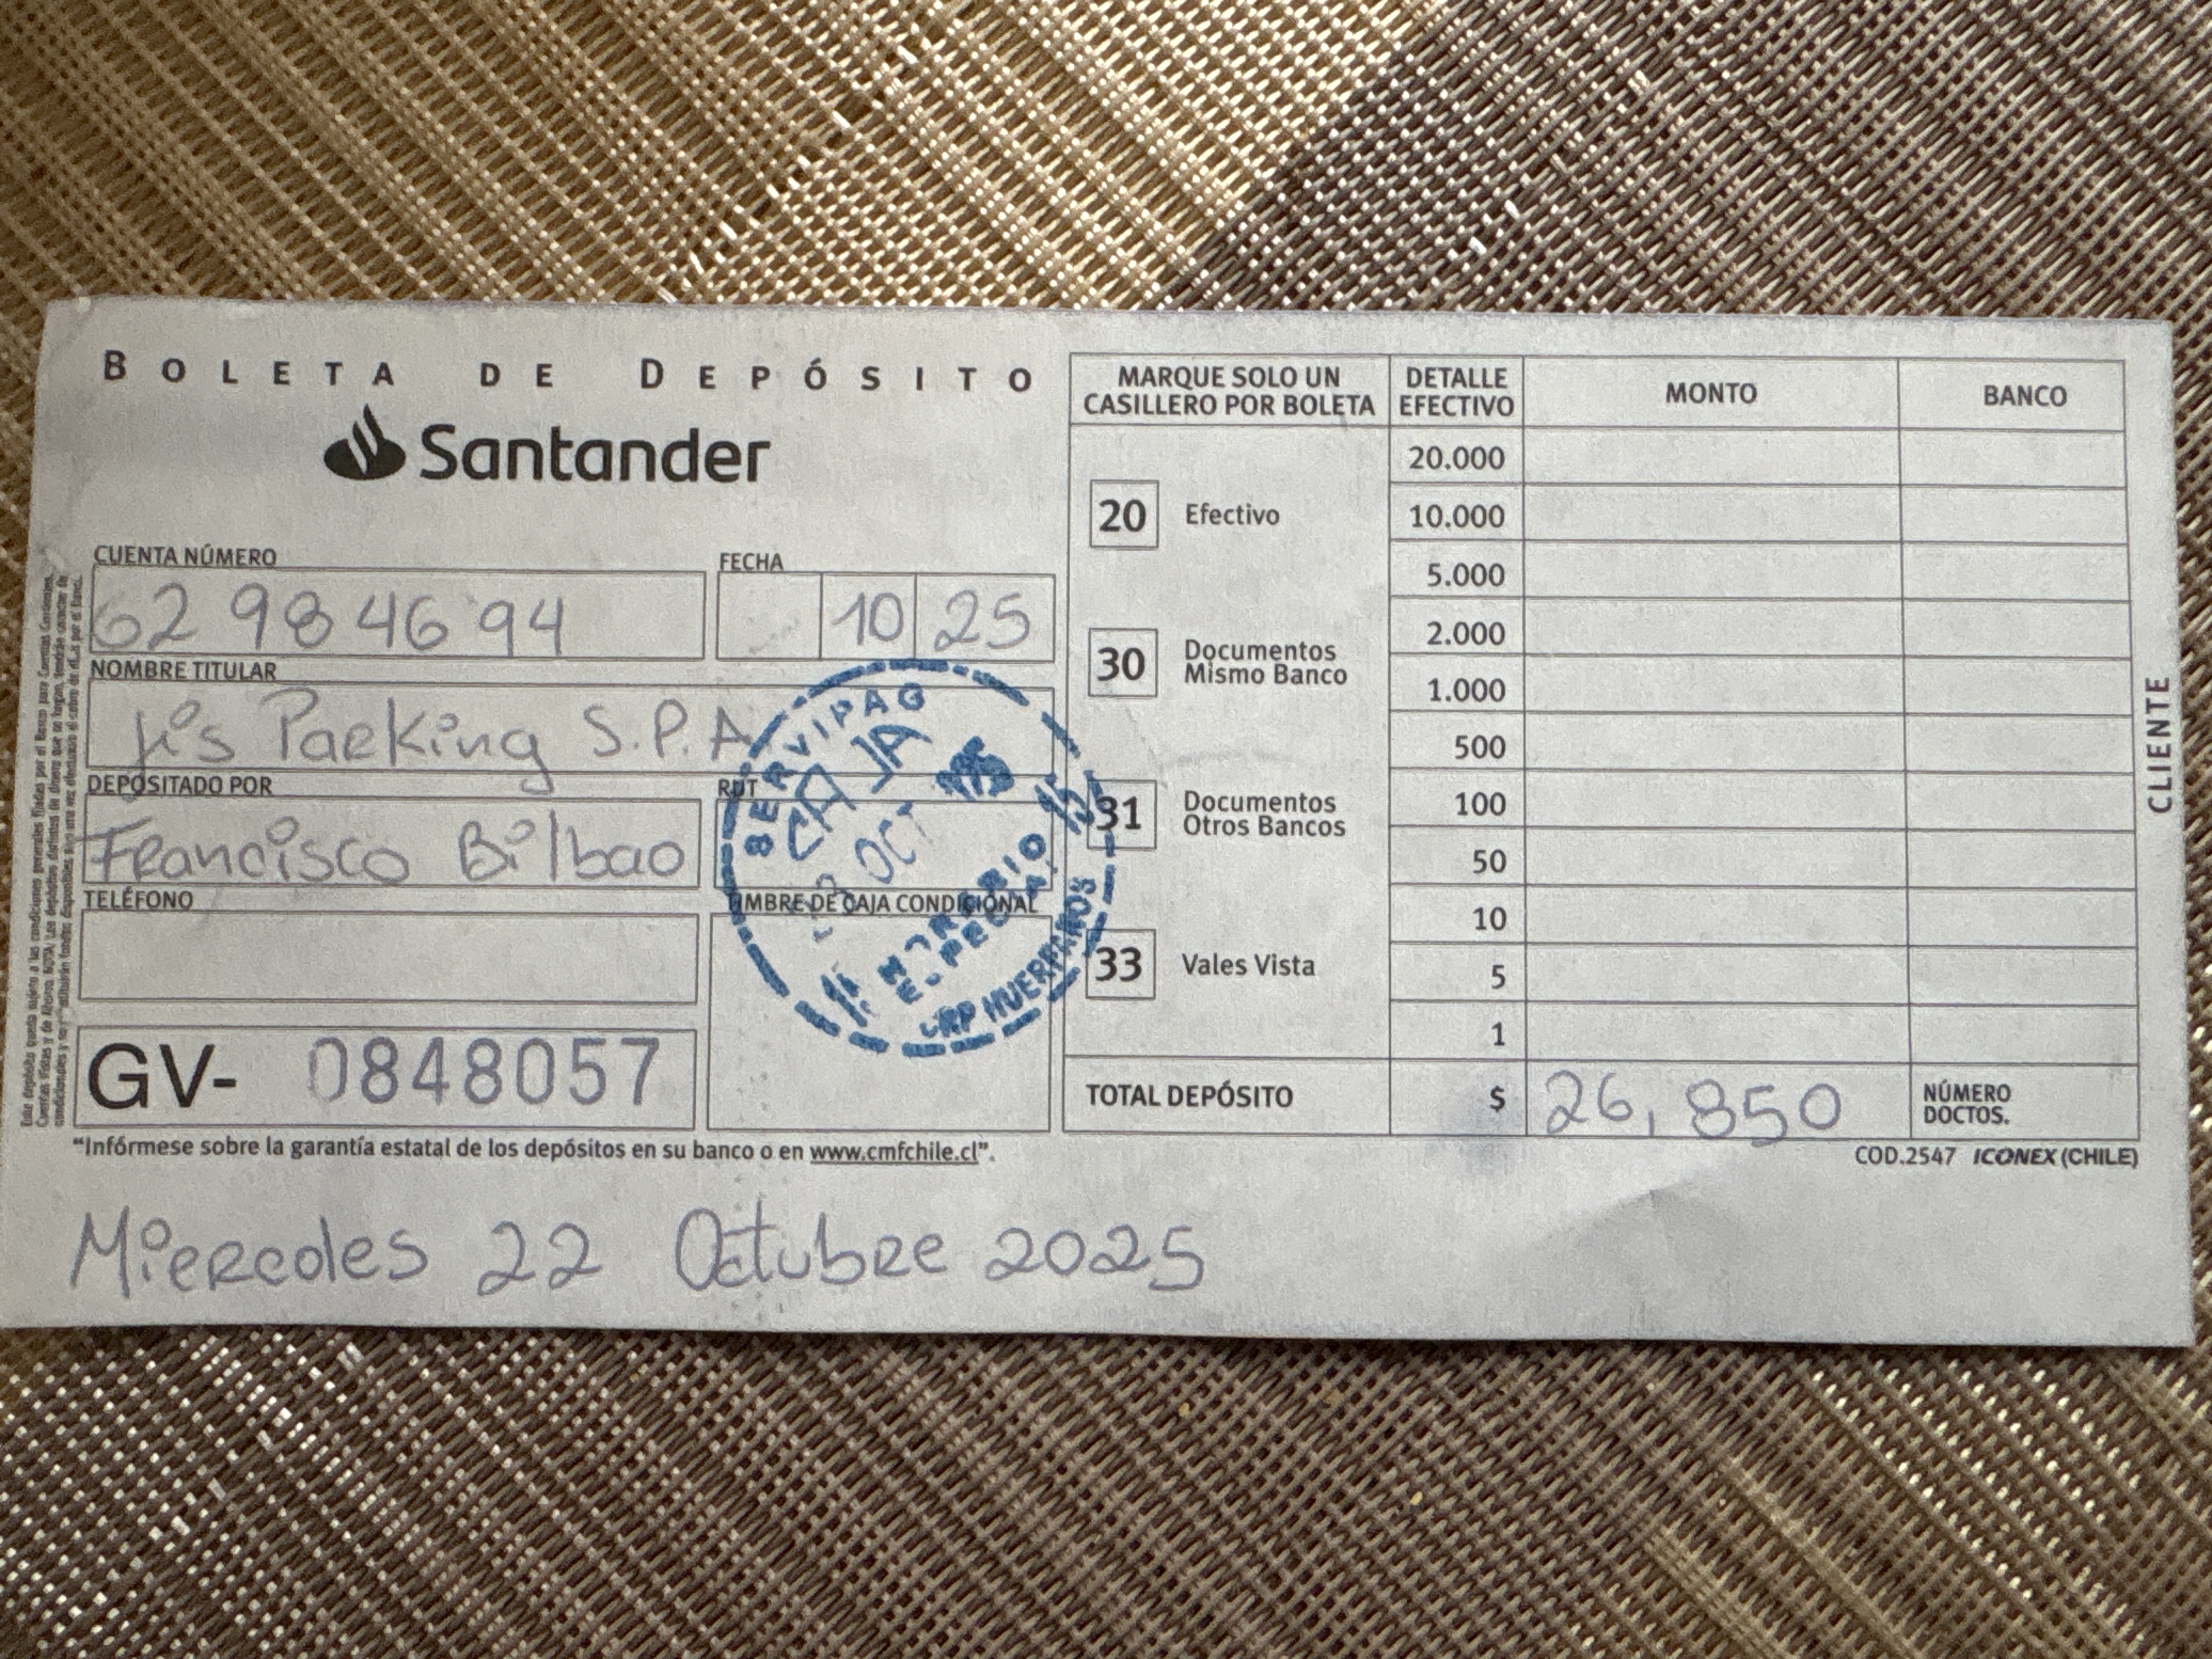 BOLETA DE DEPÓSITO
Santander
CUENTA NÚMERO
62 98 46 94
FECHA
10 25
NOMBRE TITULAR
Jis Parking S.P.A
DEPOSITADO POR
Francisco Bilbao
RUT
TELÉFONO
TIMBRE DE CAJA CONDICIONAL
SERVIPAG
CAJA
OCT
HORARIO
HUERFANOS
GV- 0848057
"Infórmese sobre la garantía estatal de los depósitos en su banco o en www.cmfchile.cl".
Miercoles 22 Octubre 2025
MARQUE SOLO UN CASILLERO POR BOLETA
20 Efectivo
30 Documentos Mismo Banco
31 Documentos Otros Bancos
33 Vales Vista
DETALLE EFECTIVO
MONTO
BANCO
20.000
10.000
5.000
2.000
1.000
500
100
50
10
5
1
TOTAL DEPÓSITO $ 26,850
NÚMERO DOCTOS.
COD.2547 ICONEX (CHILE)
CLIENTE